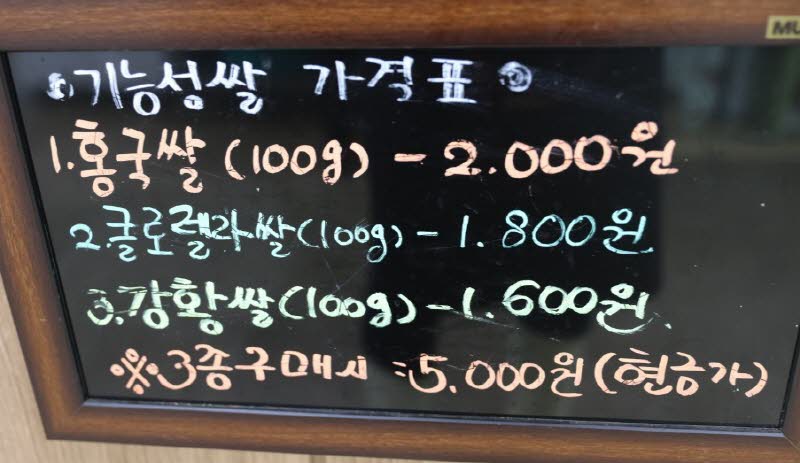 MU
⊙기능성쌀 가격표⊙
1.홍국쌀 (100g) - 2.000원
2.클로렐라쌀(100g) - 1.800원.
3.강황쌀(100g) - 1.600원.
※3종구매시 =5.000원(현금가)